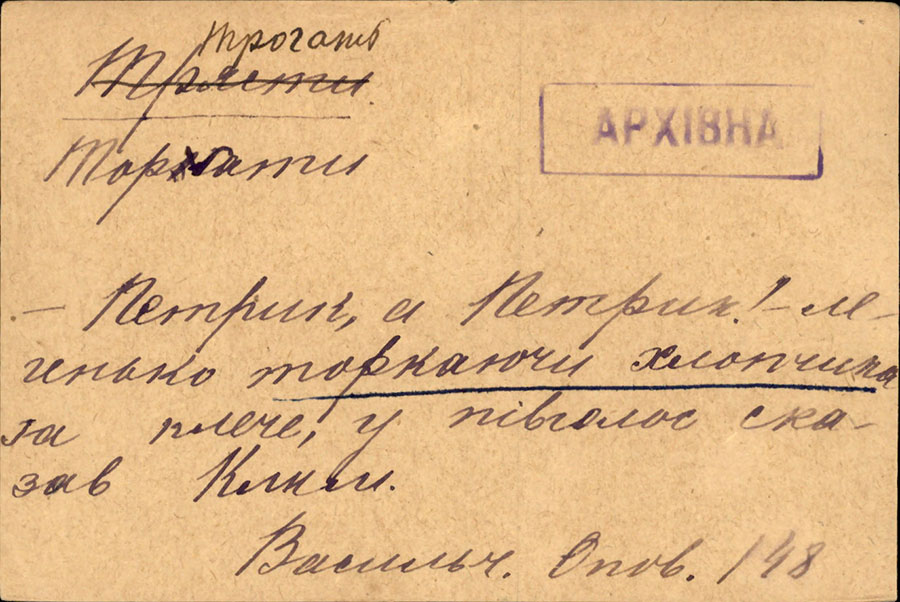 Трогать
Трясти
АРХІВНА
Торкати
— Петрик, а Петрик! — ле-
генько торкаючи хлопчика
за плече, у півголос ска-
зав Клим.
Васильч. Опов. 148